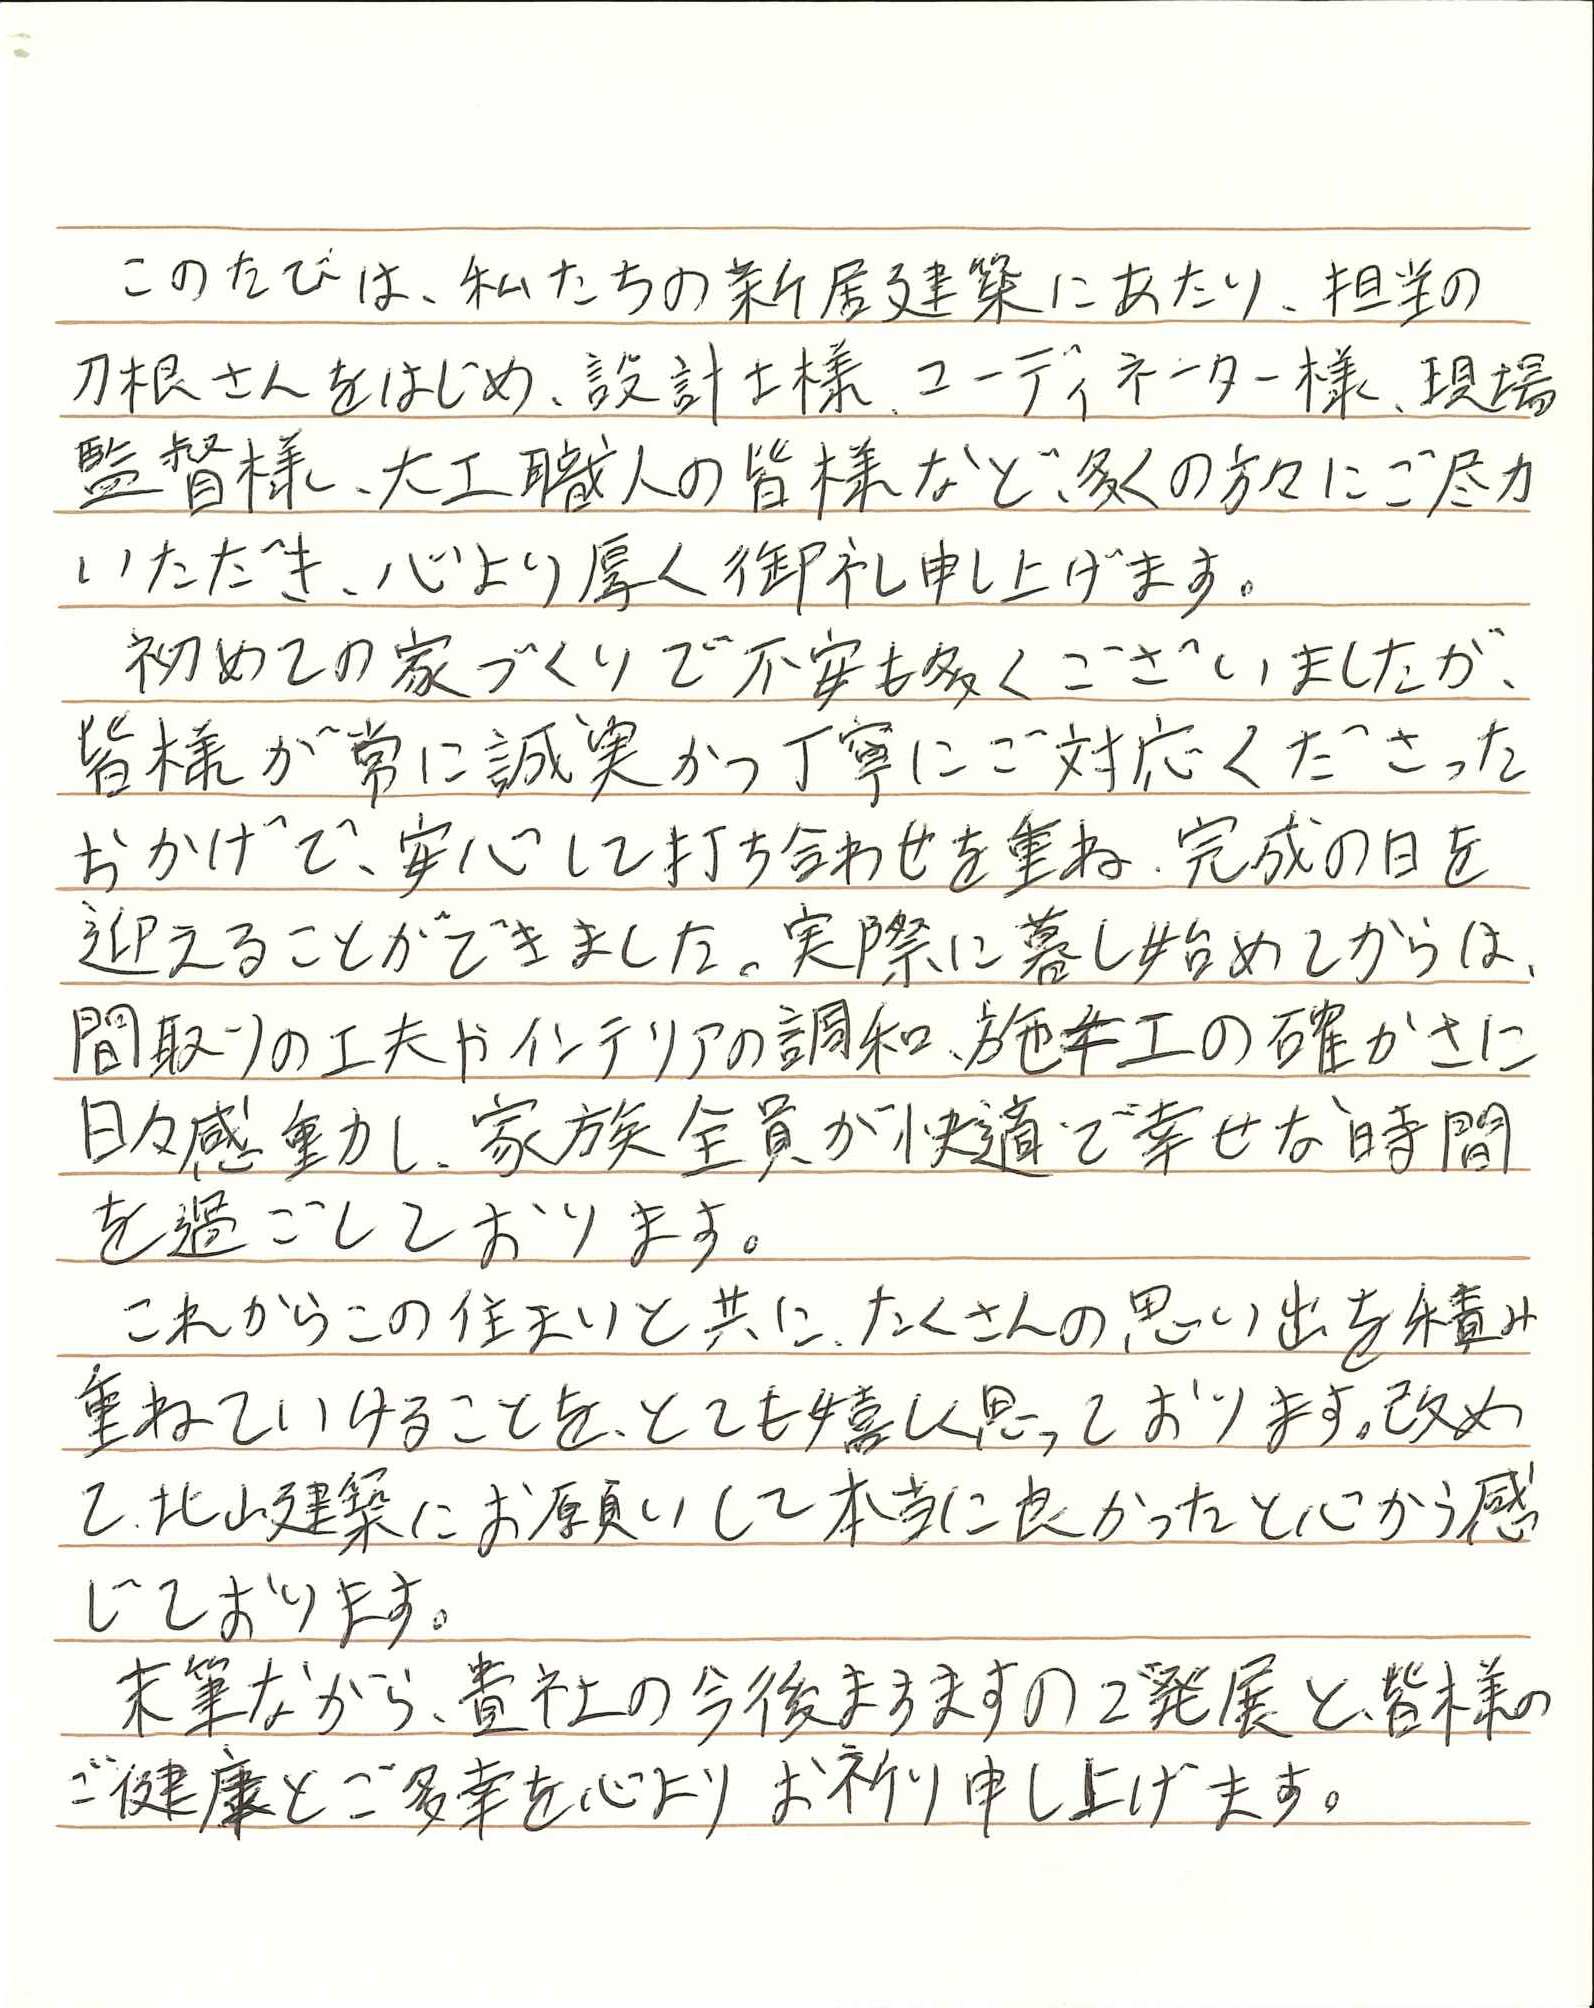 このたびは、私たちの新居建築にあたり、担当の
刀根さんをはじめ、設計士様、コーディネーター様、現場
監督様、大工職人の皆様など、多くの方々にご尽力
いただき、心より厚く御礼申し上げます。
初めての家づくりで不安も多くございましたが、
皆様が常に誠実かつ丁寧にご対応くださった
おかげで、安心して打ち合わせを重ね、完成の日を
迎えることができました。実際に暮し始めてからは、
間取りの工夫やインテリアの調和、施工の確かさに
日々感動し、家族全員が快適で幸せな時間
を過ごしております。
これからこの住まいと共に、たくさんの思い出を積み
重ねていけることを、とても嬉しく思っております。改め
て、北山建築にお願いして本当に良かったと心から感
じております。
末筆ながら、貴社の今後ますますのご発展と、皆様の
ご健康とご多幸を心よりお祈り申し上げます。